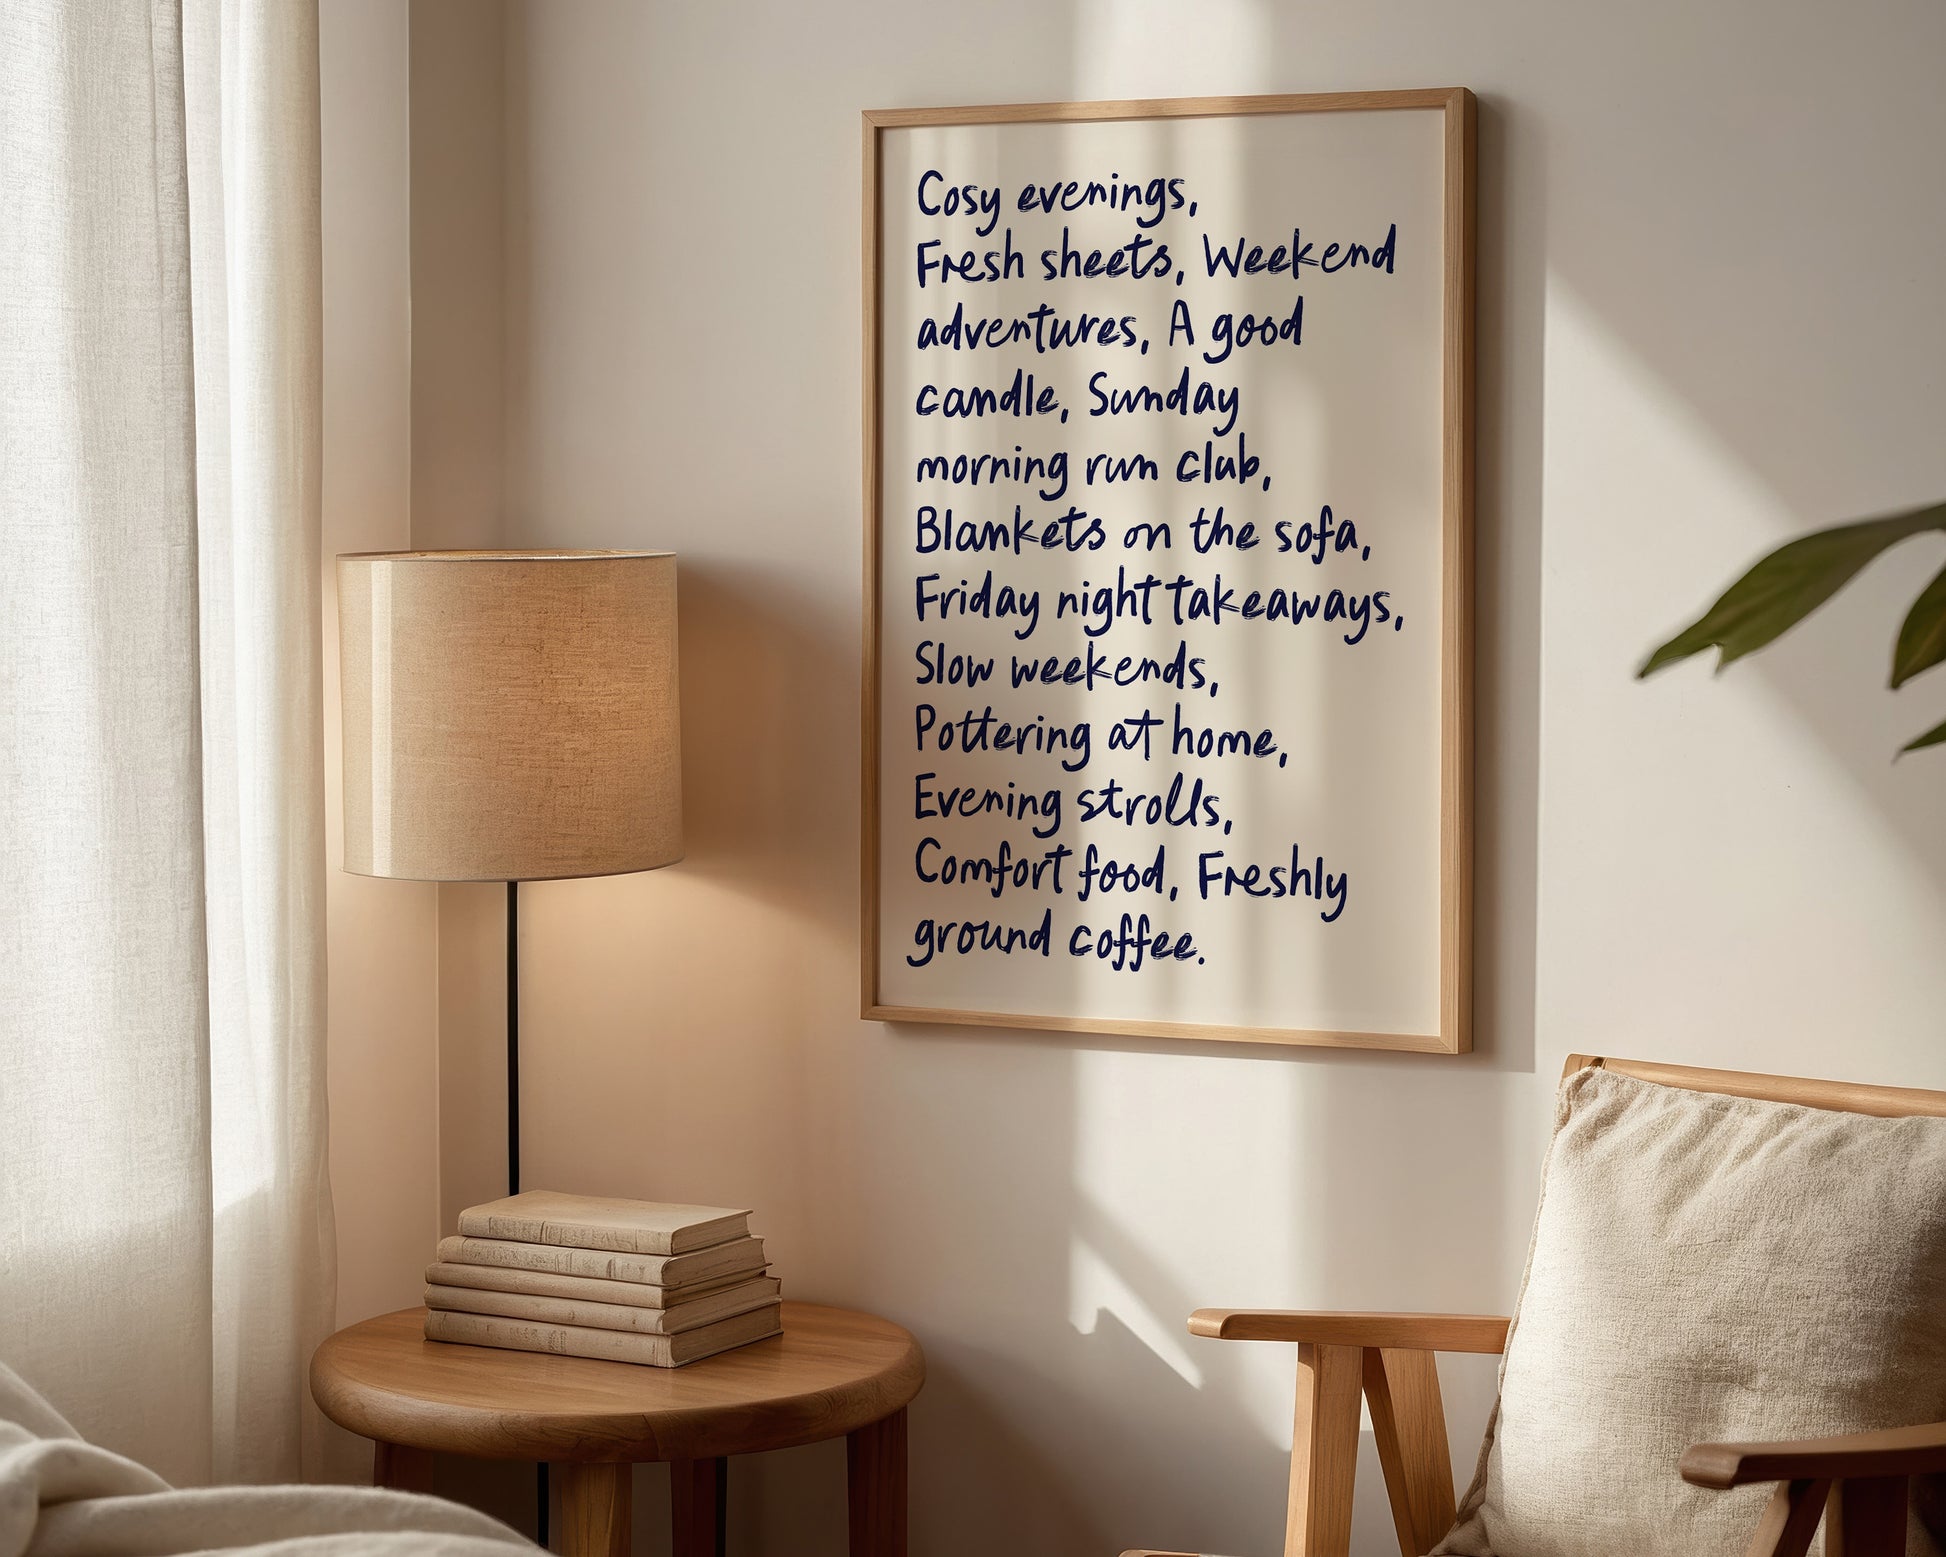 Cosy evenings,
Fresh sheets, Weekend
adventures, A good
candle, Sunday
morning run club,
Blankets on the sofa,
Friday night takeaways,
Slow weekends,
Pottering at home,
Evening strolls,
Comfort food, Freshly
ground coffee.